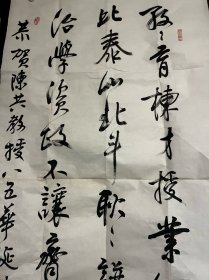 孜孜育栋才授業
比泰山北斗耿耿
治學資政不讓齊
恭贺陳共教授八五華延